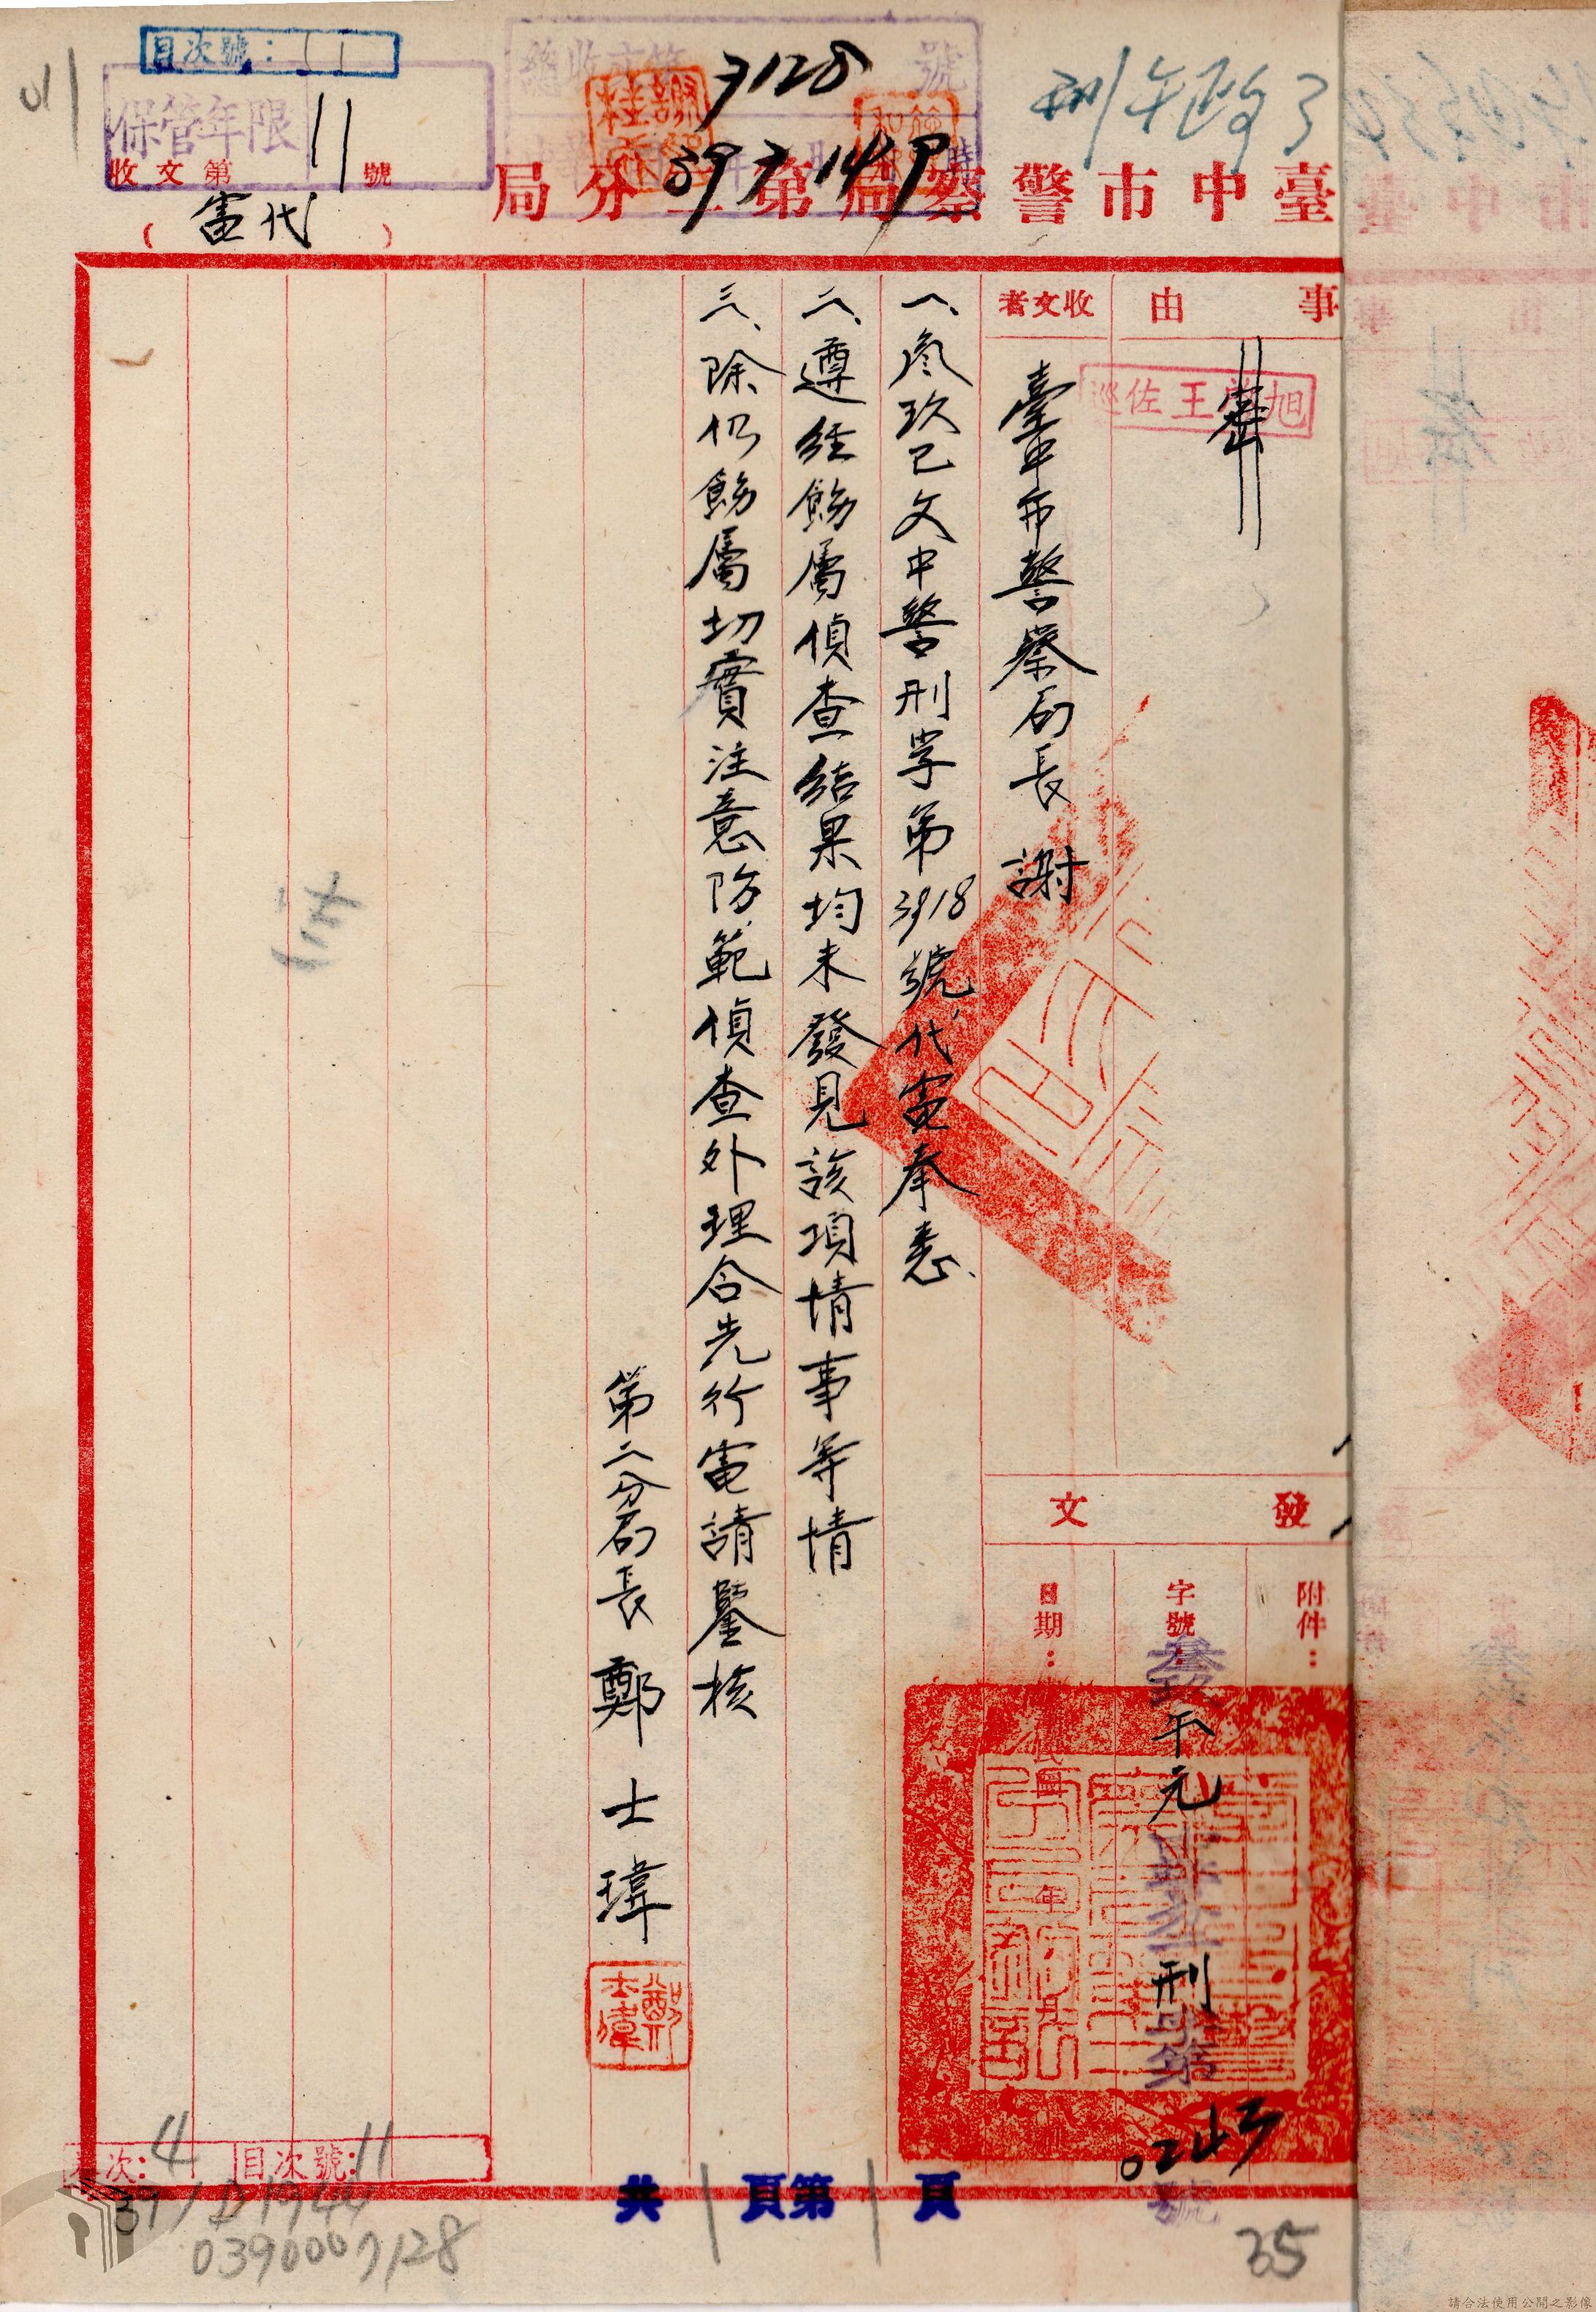 目次號：11
保管年限
收文第11號
總收文第7128號
39 7 14
刑午政3
臺中市警察局第二分局
（代電）
事由
密
巡佐王
收文者
臺中市警察局長 謝
發文
附件：
字號：叁玖午元 刑字第0243號
日期：民國 年 月
一、叁玖已文中警刑字第3918號代電奉悉、
二、遵經飭屬偵查結果均未發見該項情事等情
三、除仍飭屬切實注意防範偵查外理合先行電請鑒核
第二分局長 鄭士瑋
鄭士瑋
共1頁第1頁
次：4 目次號：11
0390007128
35
請合法使用公開之影像